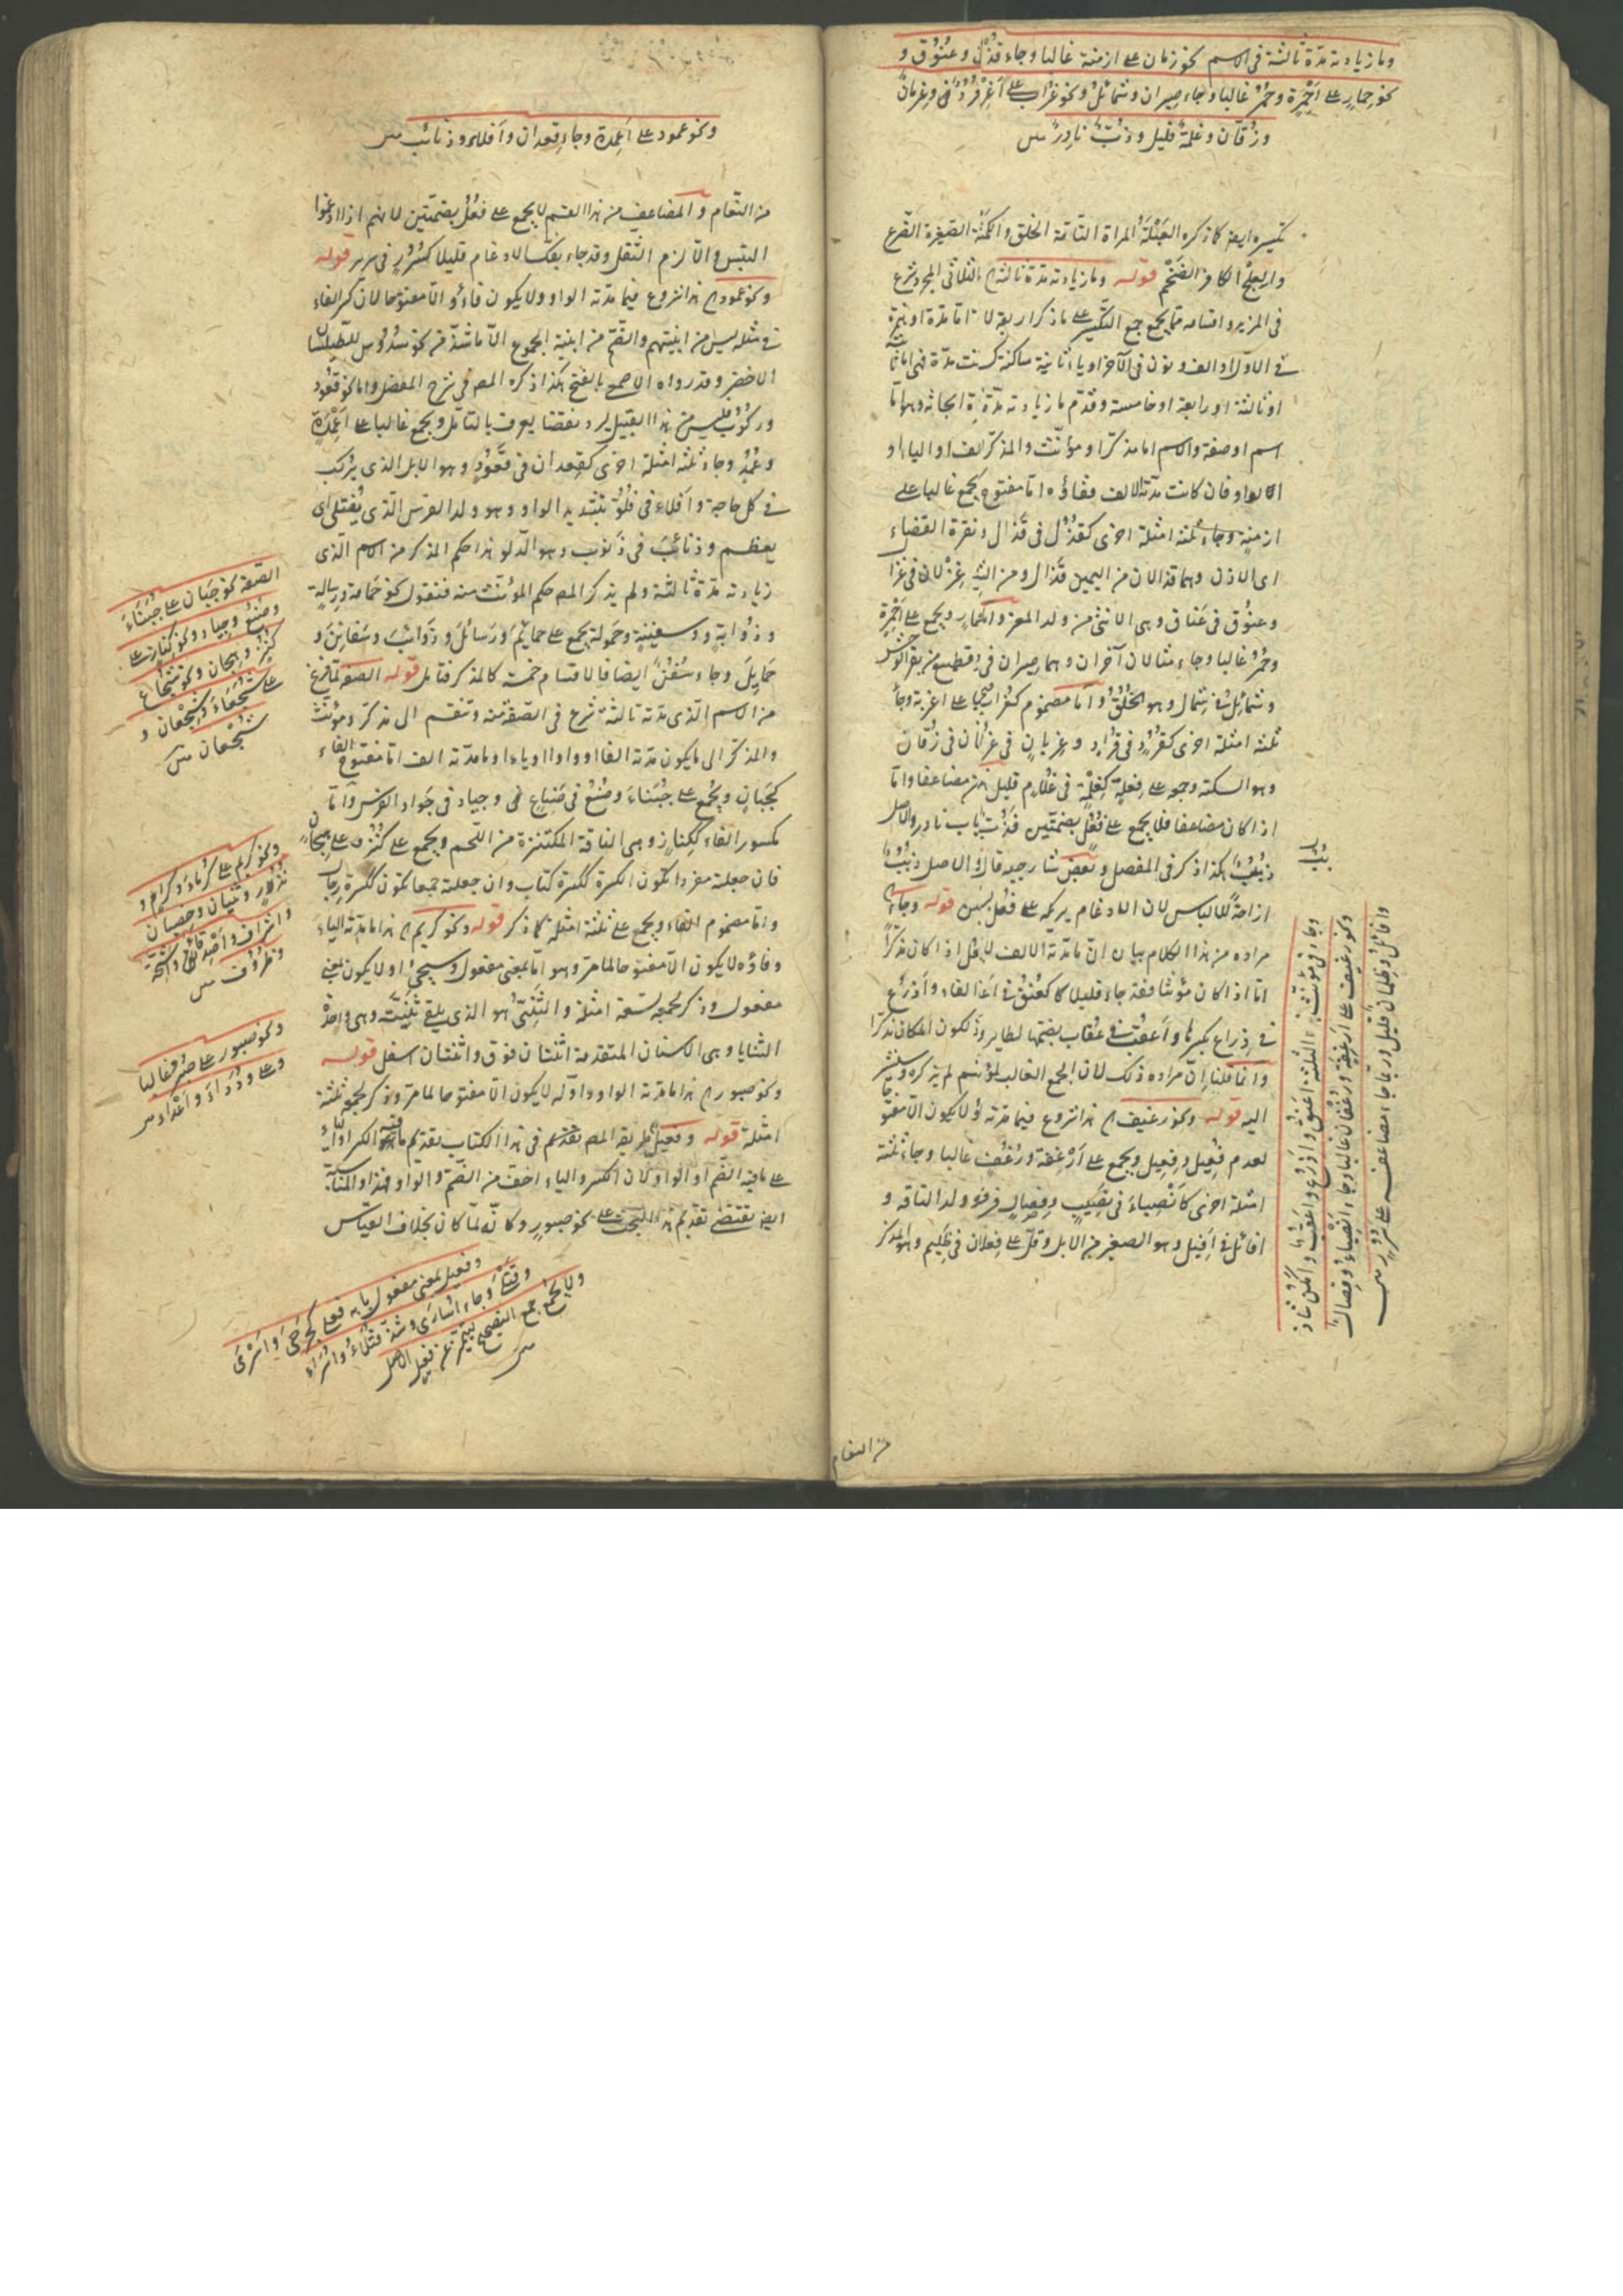 وما زيادته مدّة ثالثة فى الاسم نحو زمان على ازمنة غالبا وجاء قُذُل وعنُوق و
نحو حِمارٍ على اَحْمِرة وحُمُر غالبا وجاء صِيران وشمائل ونحو غُراب على اَغْرِبة وجاء قُرُد وغِربانٌ
وزُقّان وغِلمة قليل وذُبّ نادِر س
تكسيره ايضا كما ذكره العَبْلَة المراة التامّة الخلق والكَمْشَة الصغيرة الضّرع
والعِلْج الكافر الضَّخْم قوله وما زيادته مدّة ثالثة الخ الثلاثى المجرد شرع
فى المزيد واقسامه ممّا يجمع جمع التكسير على ما ذكر اربعة لانه اما مدّة او همزة
فى الاوّل او الف ونون فى الآخر او ياء ثانية ساكنة كسيّت مدّة فهى اما ثانية
او ثالثة او رابعة او خامسة وقدّم ما زيادته مدّة ثالثة وهو امّا
اسم او صفة والاسم اما مذكّر او مؤنّث والمذكّر لف او الياء او
الواو فان كانت مدّته الالف ففاؤه امّا مفتوح يجمع غالبا على
ازمنة وجاء ثلثة امثلة اخرى كقُذُل فى قَذال ونقرة القفاء
اى الاذن وهما قذالان من اليمين قَذال ومن اليسار غِزْلان فى غزال
وعنُوق فى عَناق وهى الانثى من ولد المعز والحمار ويجمع على اَحْمِرة
وحُمُر غالبا وجاء مثالان آخران وهما صيران فى قطيع من بقر الوحش
وشمائل فى شِمال وهو الخُلُق وامّا مضموم كغراب يجمع على اغربة وجاء
ثلثة امثلة اخرى كقُرُد فى قُراد وغِربانٍ فى غراب وزُقّان فى زُقاق
وهو السكة وجمعه على فِعلةٍ كغِلمة فى غلام قليل من مضاعفا وامّا
اذا كان مضاعفا فلا يجمع على فُعُل بضمّتين فذُبّ فى ذباب نادر والاصل
ذُبُبٌ هكذا ذكر فى المفصل وبعض شارحيه قال الاصل ذبُبٌ
ازاحةً للالباس لان الادغام يركبه على فعل بسببين قوله وجاء الخ
مراده من هذا الكلام بيان انّ ما مدّته الالف يجمع اذا كان مذكّراً
امّا اذا كان مؤنثا فقد جاء قليلا كاَعْنُق فى عناق واَذرُع
فى ذِراع بكسرها واَعقُب فى عُقاب بضمّها لطاير وذلك لكون المكان مذكّرا
وانما قلنا انّ مراده ذلك لان الجمع الغالب للمؤنث لم يذكره وسنشير
اليه قوله ونحو رغيف الخ هذا شروع فيما مدّته ياء لا يكون الّا مفتوحا
لعدم فُعِيل وفِعيل ويجمع على اَرْغِفة ورُغُف غالبا وجاء ثلثة
امثلة اخرى كاَنْصِباء فى نصيب وفِصالٍ فى فصيل ولد الناقة و
افائل فى اَفيل وهو الصغير من الابل وقلّ على فِعلان فى ظليم وهو الذكر
وجاء فى مؤنّث الثلثة اَعْنُق واَذْرُع واَعْقُب واَمْكُن شاذ
ونحو رغيف على اَرْغِفة ورُغُف ورُغْفان غالبا وجاء اَنْصِباء وفِصالٌ
وافائل وظِلمان قليل وربما جاء مضاعفه على سُرُر س
من النعام
ونحو عمود على اَعمِدة وجاء قِعدان واَفلاء وذنائب س
من النّعام والمضاعف من هذا القسم لا يجمع على فُعُل بضمّتين لانهم اذا ادغموا
التبس والّا لزم الثقل وقد جاء بفكّ الادغام قليلا كسُرُر فى سرير قوله
ونحو عمود الخ هذا شروع فيما مدّته الواو ولا يكون فاؤه الّا مفتوحا لان كسر الفاء
فى مثله ليس من ابنيتهم والضّم من ابنية الجموع الّا ما شذّ من نحو سُدُوس للطيلسان
الاخضر وقد رواه الاصمعى بالفتح هكذا ذكره المص فى شرح المفصل واما نحو قعود
وركُوب فليس من هذا القبيل ليرد نقضا يعرف بالتامّل ويجمع غالبا على اَعْمِدة
وعُمُد وجاء ثلثة امثلة اخرى كقِعدان فى قَعُودٍ وهو الابل الذى يُركب
فى كل حاجة وافلاء فى فلُوّ بتشديد الواو وهو ولد الفرس الّذى يُفتلى اى
يعظم وذنائب فى ذَنوب وهو الدّلو هذا حكم المذكر من الاسم الّذى
زيادته مدّة ثالثة ولم يذكر المص حكم المؤنّث منه فنقول نحو حَمامة ورِسالةٍ
وذُؤابةٍ وسفينةٍ وحَمولة يجمع على حمائمَ ورَسائلَ وذَوائبَ وسَفائنَ و
حَمايلَ وجاء سُفُنٌ ايضا فالاقسام خمسة كالمذكر فتامل قوله الصفة لمّا فرغ
من الاسم الذى مدّته ثالثة شرع فى الصّفة منه وتنقسم الى مذكّر ومؤنث
والمذكّر الى ما يكون مدّته الفا او واوا او ياء او ما مدّته الف امّا مفتوح الفاء
كجَبانٍ ويُجمع على جُبَناء وصُنُع فى صَناع وجياد فى جَواد الفرس وامّا
مكسور الفاء ككِنازٍ وهى الناقة المكتنزة من اللّحم ويجمع على كُنُز وعلى هِجان
فان جعلته مفردا تكون الكسرة ككسرة كتاب وان جعلته جمعا تكون ككسرة رجال
وامّا مضموم الفاء ويجمع على ثلثة امثلة كما ذكر قوله ونحو كريم الخ هذا ما مدّته الياء
وفاؤه لا يكون الّا مفتوحا لما مرّ وهو امّا بمعنى مفعول وسيجئ او لا يكون بمعنى
مفعول وذكر لجمعه تسعة امثلة والثَّنِىُّ هو الذى يلقى ثَنِيّته وهى واحدة
الثنايا وهى الاسنان المتقدمة اثنتان فوق واثنتان اسفل قوله
ونحو صبور الخ هذا ما مدّته الواو واوّله لا يكون الّا مفتوحا لما مرّ وذكر لجمعه ثلثة
امثلة قوله وفعيل طريقة المص فى هذا الكتاب تقديم ما فيه الكسر او الياء
على ما فيه الضّم او الواو لان الكسر والياء اخفّ من الضّم والواو وهذا والمناسبة
ايضا يقتضى تقديم هذا البحث على نحو صبورٍ وكانّه لمّا كان بخلاف القياس
الصّفة نحو جَبان على جُبَناءَ
وصُنُع وجِياد ونحو كِناز على
كُنُز وهِجان ونحو شُجاعٍ
على شُجَعاءَ وشِجْعان و
شُجْعان س
ونحو كريم على كُرَماءَ وكِرام و
نُذُر وثُنيان وخِصيان
واشراف واَصْدِقاء واَشِحّة
وظُروف س
ونحو صبور على صُبُر غالبا
وعلى وُدَداءَ واَعْداء س
وفعيل بمعنى مفعول بابه فَعْلى كَجَرْحى واَسْرى
وقَتْلى وجاء اُسارى وشذّ قُتَلاءُ واُسَراء
ولا يجمع جمع التصحيح ليتميّز عن فعيل الاصل
س